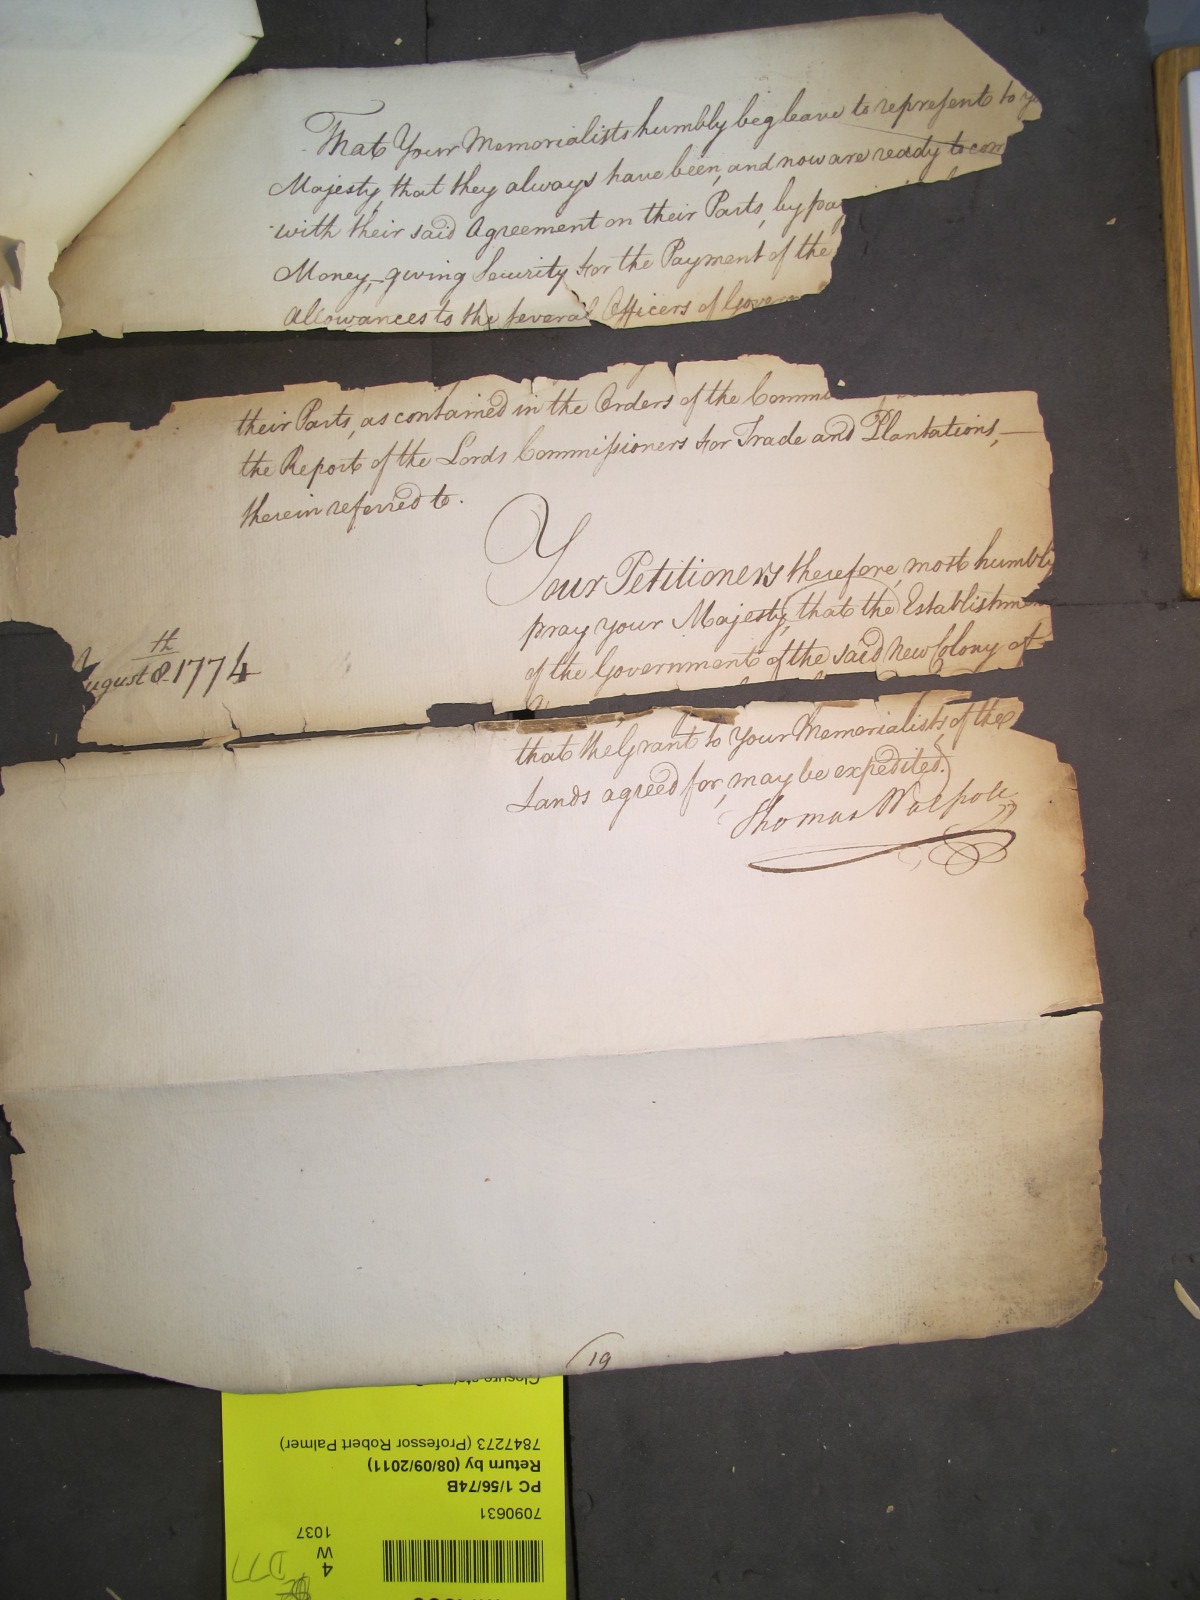 That Your Memorialists humbly beg leave to represent to
Majesty, that they always have been, and now are ready to com
with their said Agreement on their Parts, by pay
Money, giving Security for the Payment of the
Allowances to the several Officers of Govern
their Parts, as contained in the Orders of the Commi
the Report of the Lords Commissioners for Trade and Plantations,
therein referred to.
Your Petitioners therefore, most humbl
pray your Majesty, that the Establishmen
of the Government of the said New Colony of
ugust 8th 1774
that the Grant to Your Memorialists, of the
Lands agreed for, may be expedited.
Thomas Walpole
19
7847273 (Professor Robert Palmer)
Return by (08/09/2011)
PC 1/56/74B
7090631
4
W
1037
D77